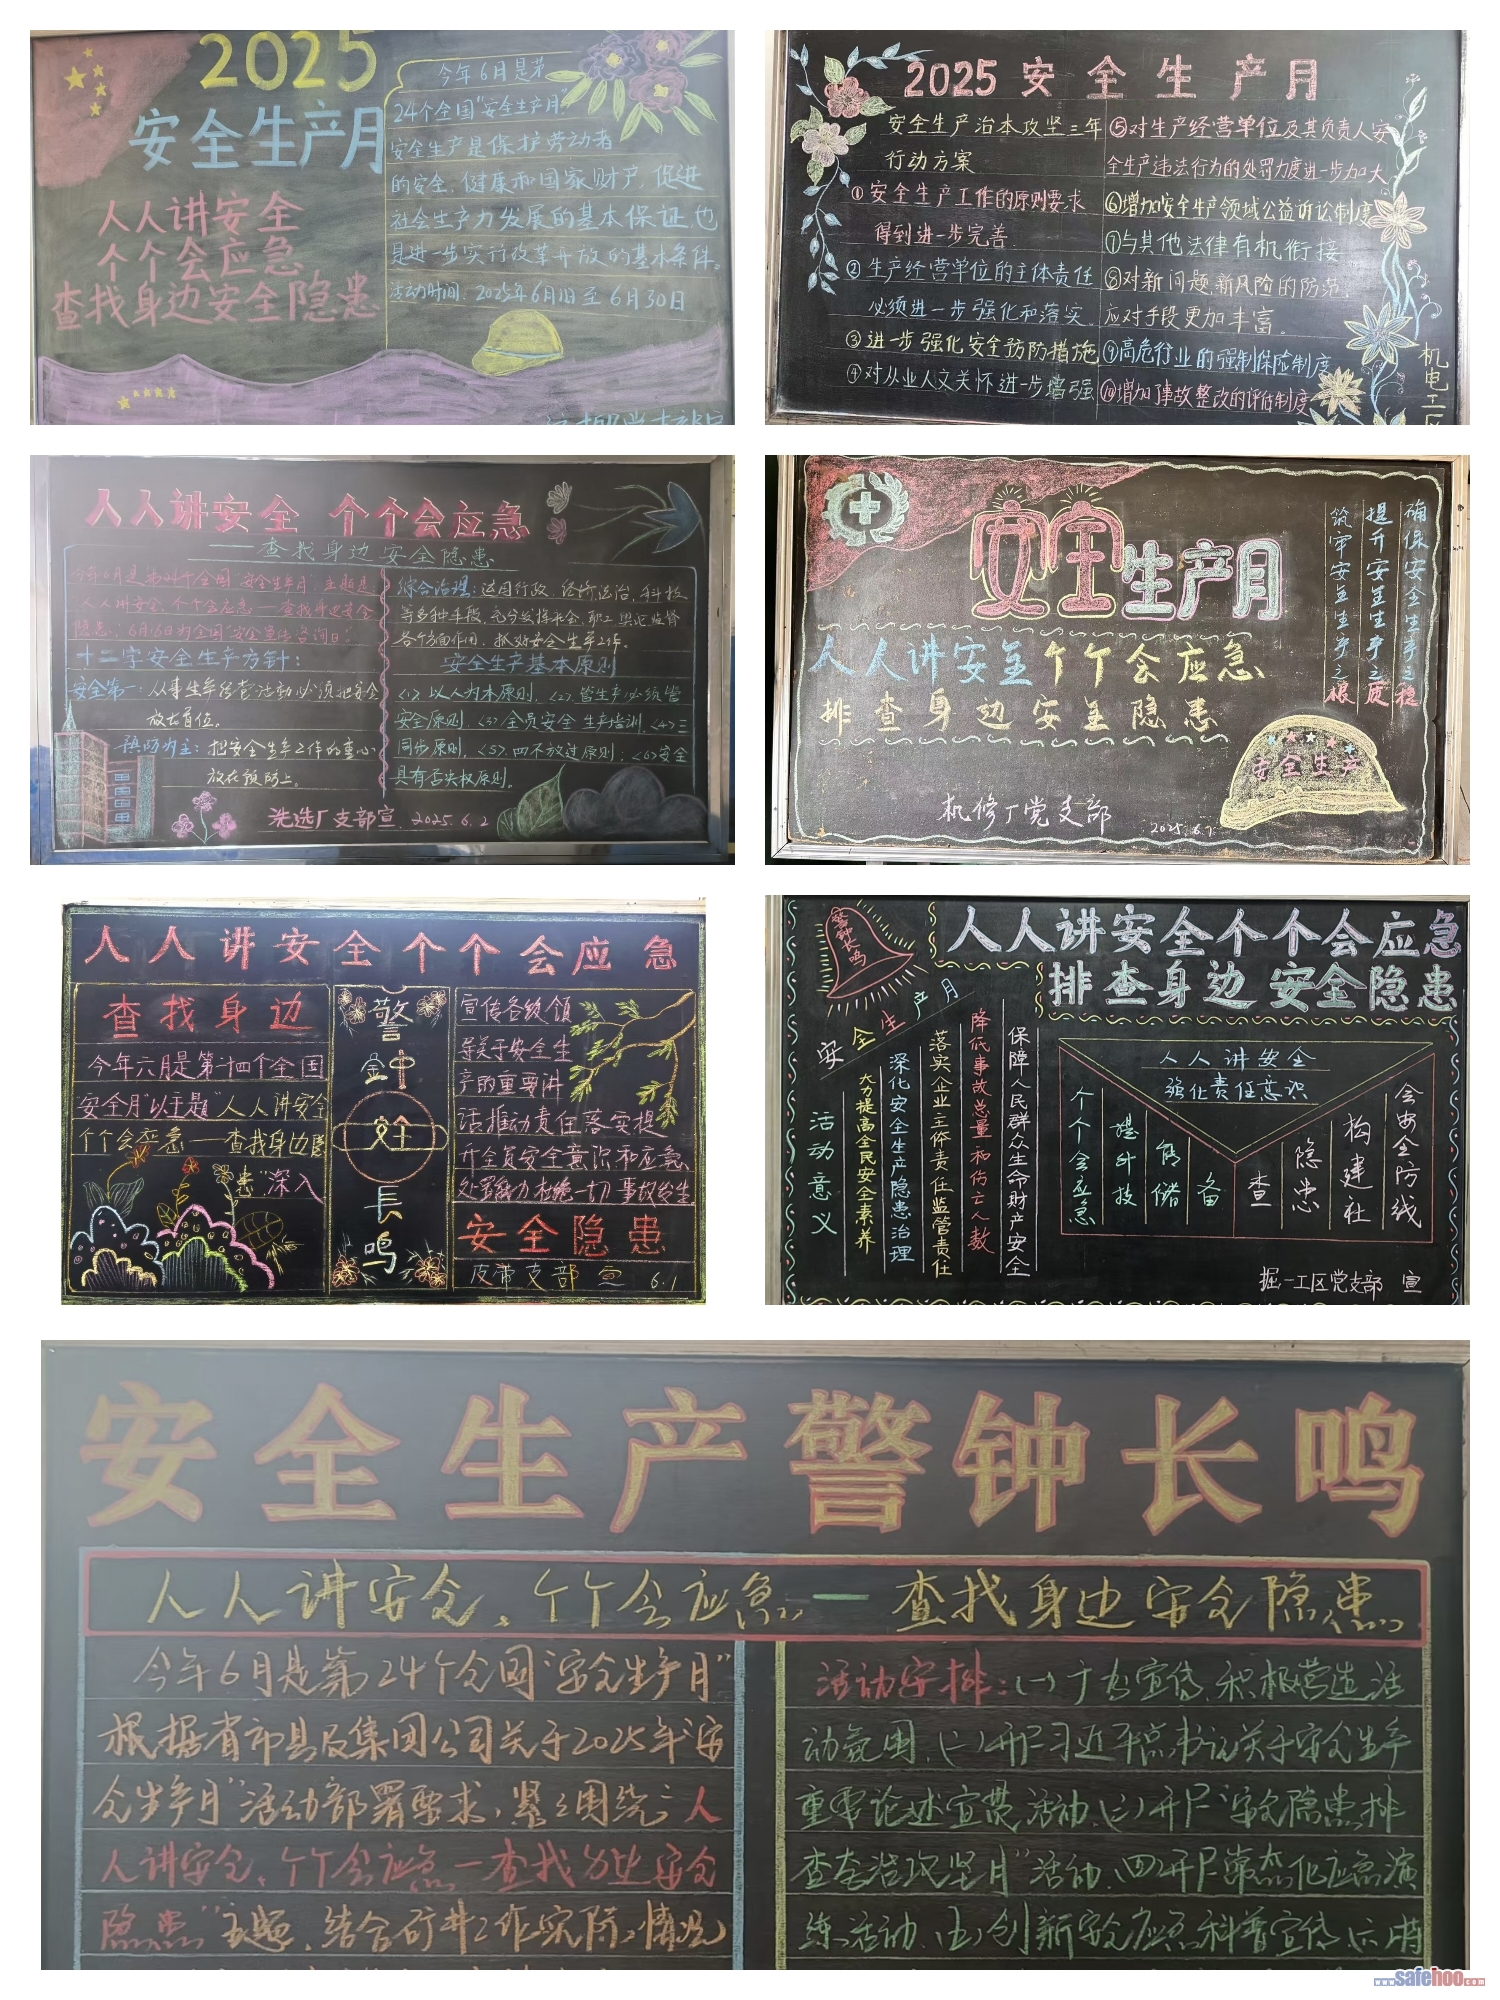 2025
安全生产月
人人讲安全
个个会应急
查找身边安全隐患
今年6月是第
24个全国“安全生产月”
安全生产是保护劳动者
的安全、健康和国家财产,促进
社会生产力发展的基本保证,也
是进一步实行改革开放的基本条件。
活动时间:2025年6月1日至6月30日
2025安全生产月
安全生产治本攻坚三年
行动方案
①安全生产工作的原则要求
得到进一步完善
②生产经营单位的主体责任
必须进一步强化和落实
③进一步强化安全预防措施
④对从业人文关怀进一步增强
⑤对生产经营单位及其负责人安
全生产违法行为的处罚力度进一步加大
⑥增加安全生产领域公益诉讼制度
⑦与其他法律有机衔接
⑧对新问题、新风险的防范、
应对手段更加丰富。
⑨高危行业的强制保险制度
⑩增加事故整改的评估制度
机电工区
人人讲安全 个个会应急
——查找身边安全隐患
今年6月是第24个全国“安全生产月”主题是
人人讲安全、个个会应急——查找身边安全
隐患;6月16日为全国“安全宣传咨询日”
十二字安全生产方针:
安全第一:从事生产经营活动必须把安全
放在首位。
预防为主:把安全生产工作的重心
放在预防上。
综合治理:运用行政、经济、法治、科技
等多种手段,充分发挥社会、职工、舆论监督
各个方面作用,抓好安全生产工作。
安全生产基本原则
<1>以人为本原则、<2>管生产必须管
安全原则、<3>全员安全生产培训、<4>三
同步原则、<5>四不放过原则;<6>安全
具有否决权原则。
洗选厂支部宣 2025.6.2
安全生产月
人人讲安全个个会应急
排查身边安全隐患
确保安全生产之稳
提升安全生产之质
筑牢安全生产之根
安全生产
机修厂党支部
2025.6.1
人人讲安全个个会应急
查找身边
今年六月是第二十四个全国
安全月“以主题”人人讲安全
个个会应急——查找身边隐
患”深入
警
钟
安全
长
鸣
宣传各级领
导关于安全生
产的重要讲
话推动责任落实提
升全员安全意识和应急
处置能力杜绝一切事故发生
安全隐患
皮带支部宣 6.1
警钟长鸣
人人讲安全个个会应急
排查身边安全隐患
安全生产月
活动意义
大力提高全民安全素养
深化安全生产隐患治理
落实企业主体责任监管责任
降低事故总量和伤亡人数
保障人民群众生命财产安全
人人讲安全
强化责任意识
个个会应急
提升技
能储
备
查
隐患
构建社
会安全防线
掘一工区党支部 宣
安全生产警钟长鸣
人人讲安全、个个会应急——查找身边安全隐患
今年6月是第24个全国“安全生产月”
根据省市县及集团公司关于2025年“安
全生产月”活动部署要求,紧紧围绕“人
人讲安全、个个会应急—查找身边安全
隐患”主题,结合矿井工作实际情况
活动安排:(一)广为宣传,积极营造活
动氛围。(二)开展习近平总书记关于安全生产
重要论述宣贯活动。(三)开展“安全隐患排
查查治攻坚月”活动。(四)开展常态化应急演
练活动。(五)创新安全应急科普宣传。(六)持
www.safehoo.com